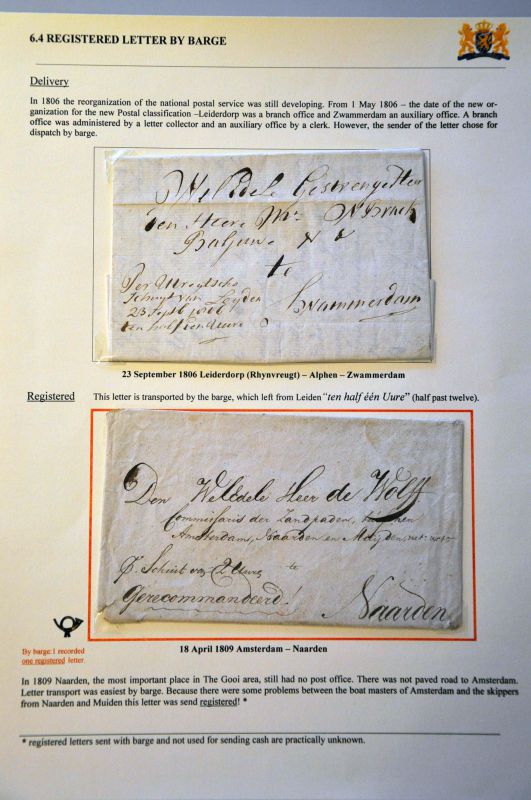 6.4 REGISTERED LETTER BY BARGE
Delivery
In 1806 the reorganization of the national postal service was still developing. From 1 May 1806 – the date of the new or-
ganization for the new Postal classification –Leiderdorp was a branch office and Zwammerdam an auxiliary office. A branch
office was administered by a letter collector and an auxiliary office by a clerk. However, the sender of the letter chose for
dispatch by barge.
WelEdele Gestrenge Heer
den Heere Mr.
Baljuw
te
Zwammerdam
Per Utregtsche
Schuyt van Leyden
23 Septb 1806
ten half een uure
23 September 1806 Leiderdorp (Rhynvreugt) – Alphen – Zwammerdam
Registered
This letter is transported by the barge, which left from Leiden "ten half één Uure" (half past twelve).
Den WelEdele Heer de Wolff
Commissaris der Zandpaden, tusschen
Amsterdam, Naarden en Muijden
Schuit van 2 Uure te
Gerecommandeerd!
Naarden
18 April 1809 Amsterdam – Naarden
By barge:1 recorded
one registered letter.
In 1809 Naarden, the most important place in The Gooi area, still had no post office. There was not paved road to Amsterdam.
Letter transport was easiest by barge. Because there were some problems between the boat masters of Amsterdam and the skippers
from Naarden and Muiden this letter was send registered! *
* registered letters sent with barge and not used for sending cash are practically unknown.